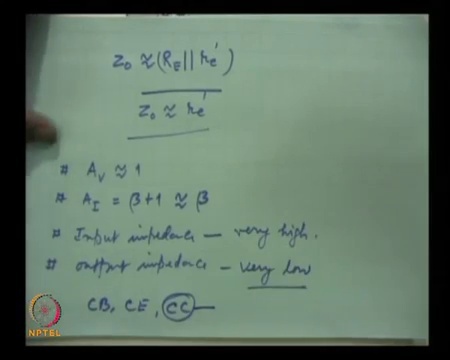 Z₀ ≈ (R_E || r_e')
Z₀ ≈ r_e'
# A_V ≈ 1
# A_I = β+1 ≈ β
# Input impedance — very high.
# output impedance – very low
CB, CE, CC —
NPTEL